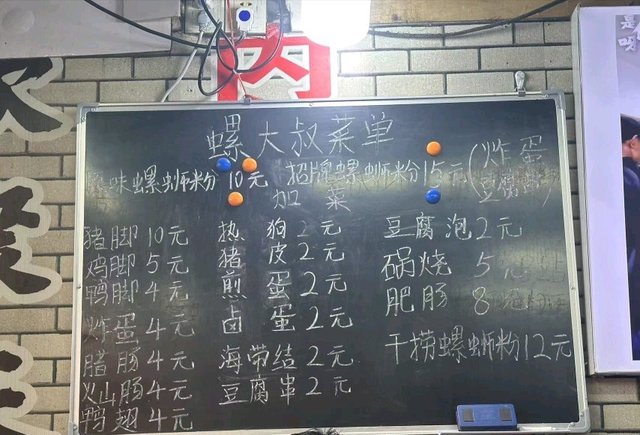 肉
螺大叔菜单
味螺蛳粉10元 招牌螺蛳粉15元(炸蛋
豆腐
加菜
猪脚10元
鸡脚5元
鸭脚4元
炸蛋4元
腊肠4元
火山肠4元
鸭翅4元
热狗2元
猪皮2元
煎蛋2元
卤蛋2元
海带结2元
豆腐串2元
豆腐泡2元
锅烧5元
肥肠8元
干捞螺蛳粉12元